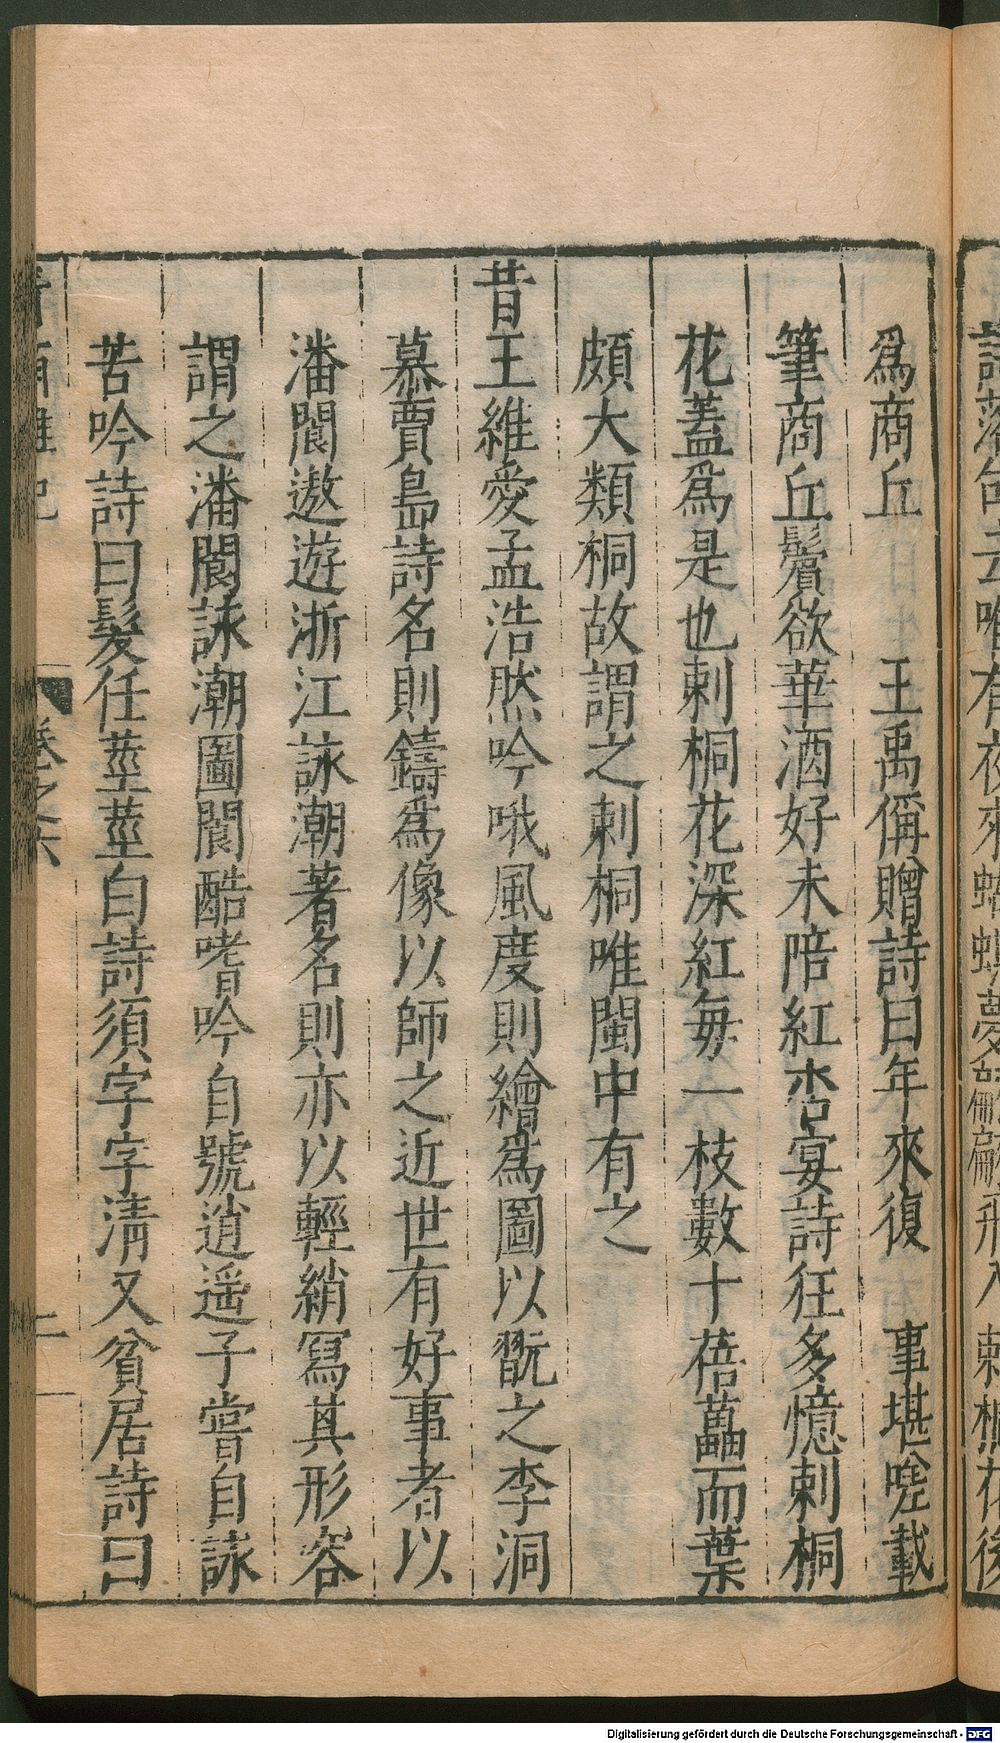 爲商丘　　王禹偁贈詩曰年來復　事堪嗟載
筆商丘鬢欲華酒好未陪紅杏宴詩狂多憶刺桐
花蓋爲是也刺桐花深紅每一枝數十蓓蕾而葉
頗大類桐故謂之刺桐唯閩中有之
昔王維愛孟浩然吟哦風度則繪爲圖以翫之李洞
慕賈島詩名則鑄爲像以師之近世有好事者以
潘閬遨遊浙江詠潮著名則亦以輕綃寫其形容
謂之潘閬詠潮圖閬酷嗜吟自號逍遥子嘗自詠
苦吟詩曰髮任莖莖白詩須字字清又貧居詩曰
卷之六
二
Digitalisierung gefördert durch die Deutsche Forschungsgemeinschaft - DFG